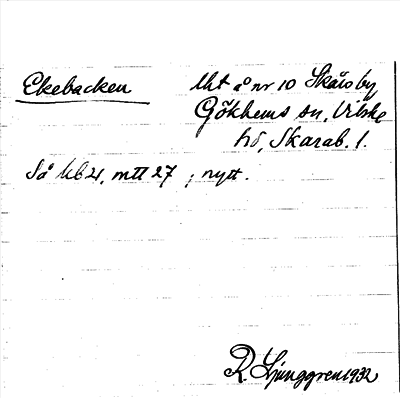 Ekebacken
Uht å nr 10 Skårsby
Gökhems sn, Vilske
hd, Skarab. l.
Så Ub 21, mtt 27 ; nytt.
R. Ljunggren 1932